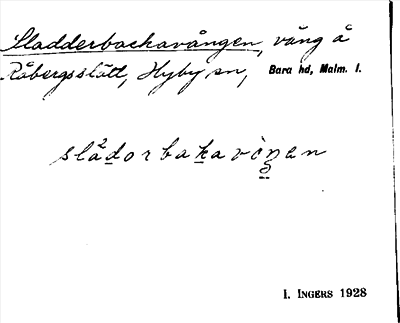 Sladderbackavången, vång å
Råbergsslätt, Hyby sn, Bara hd, Malm. l.
slådorbakavòŋen
I. INGERS 1928